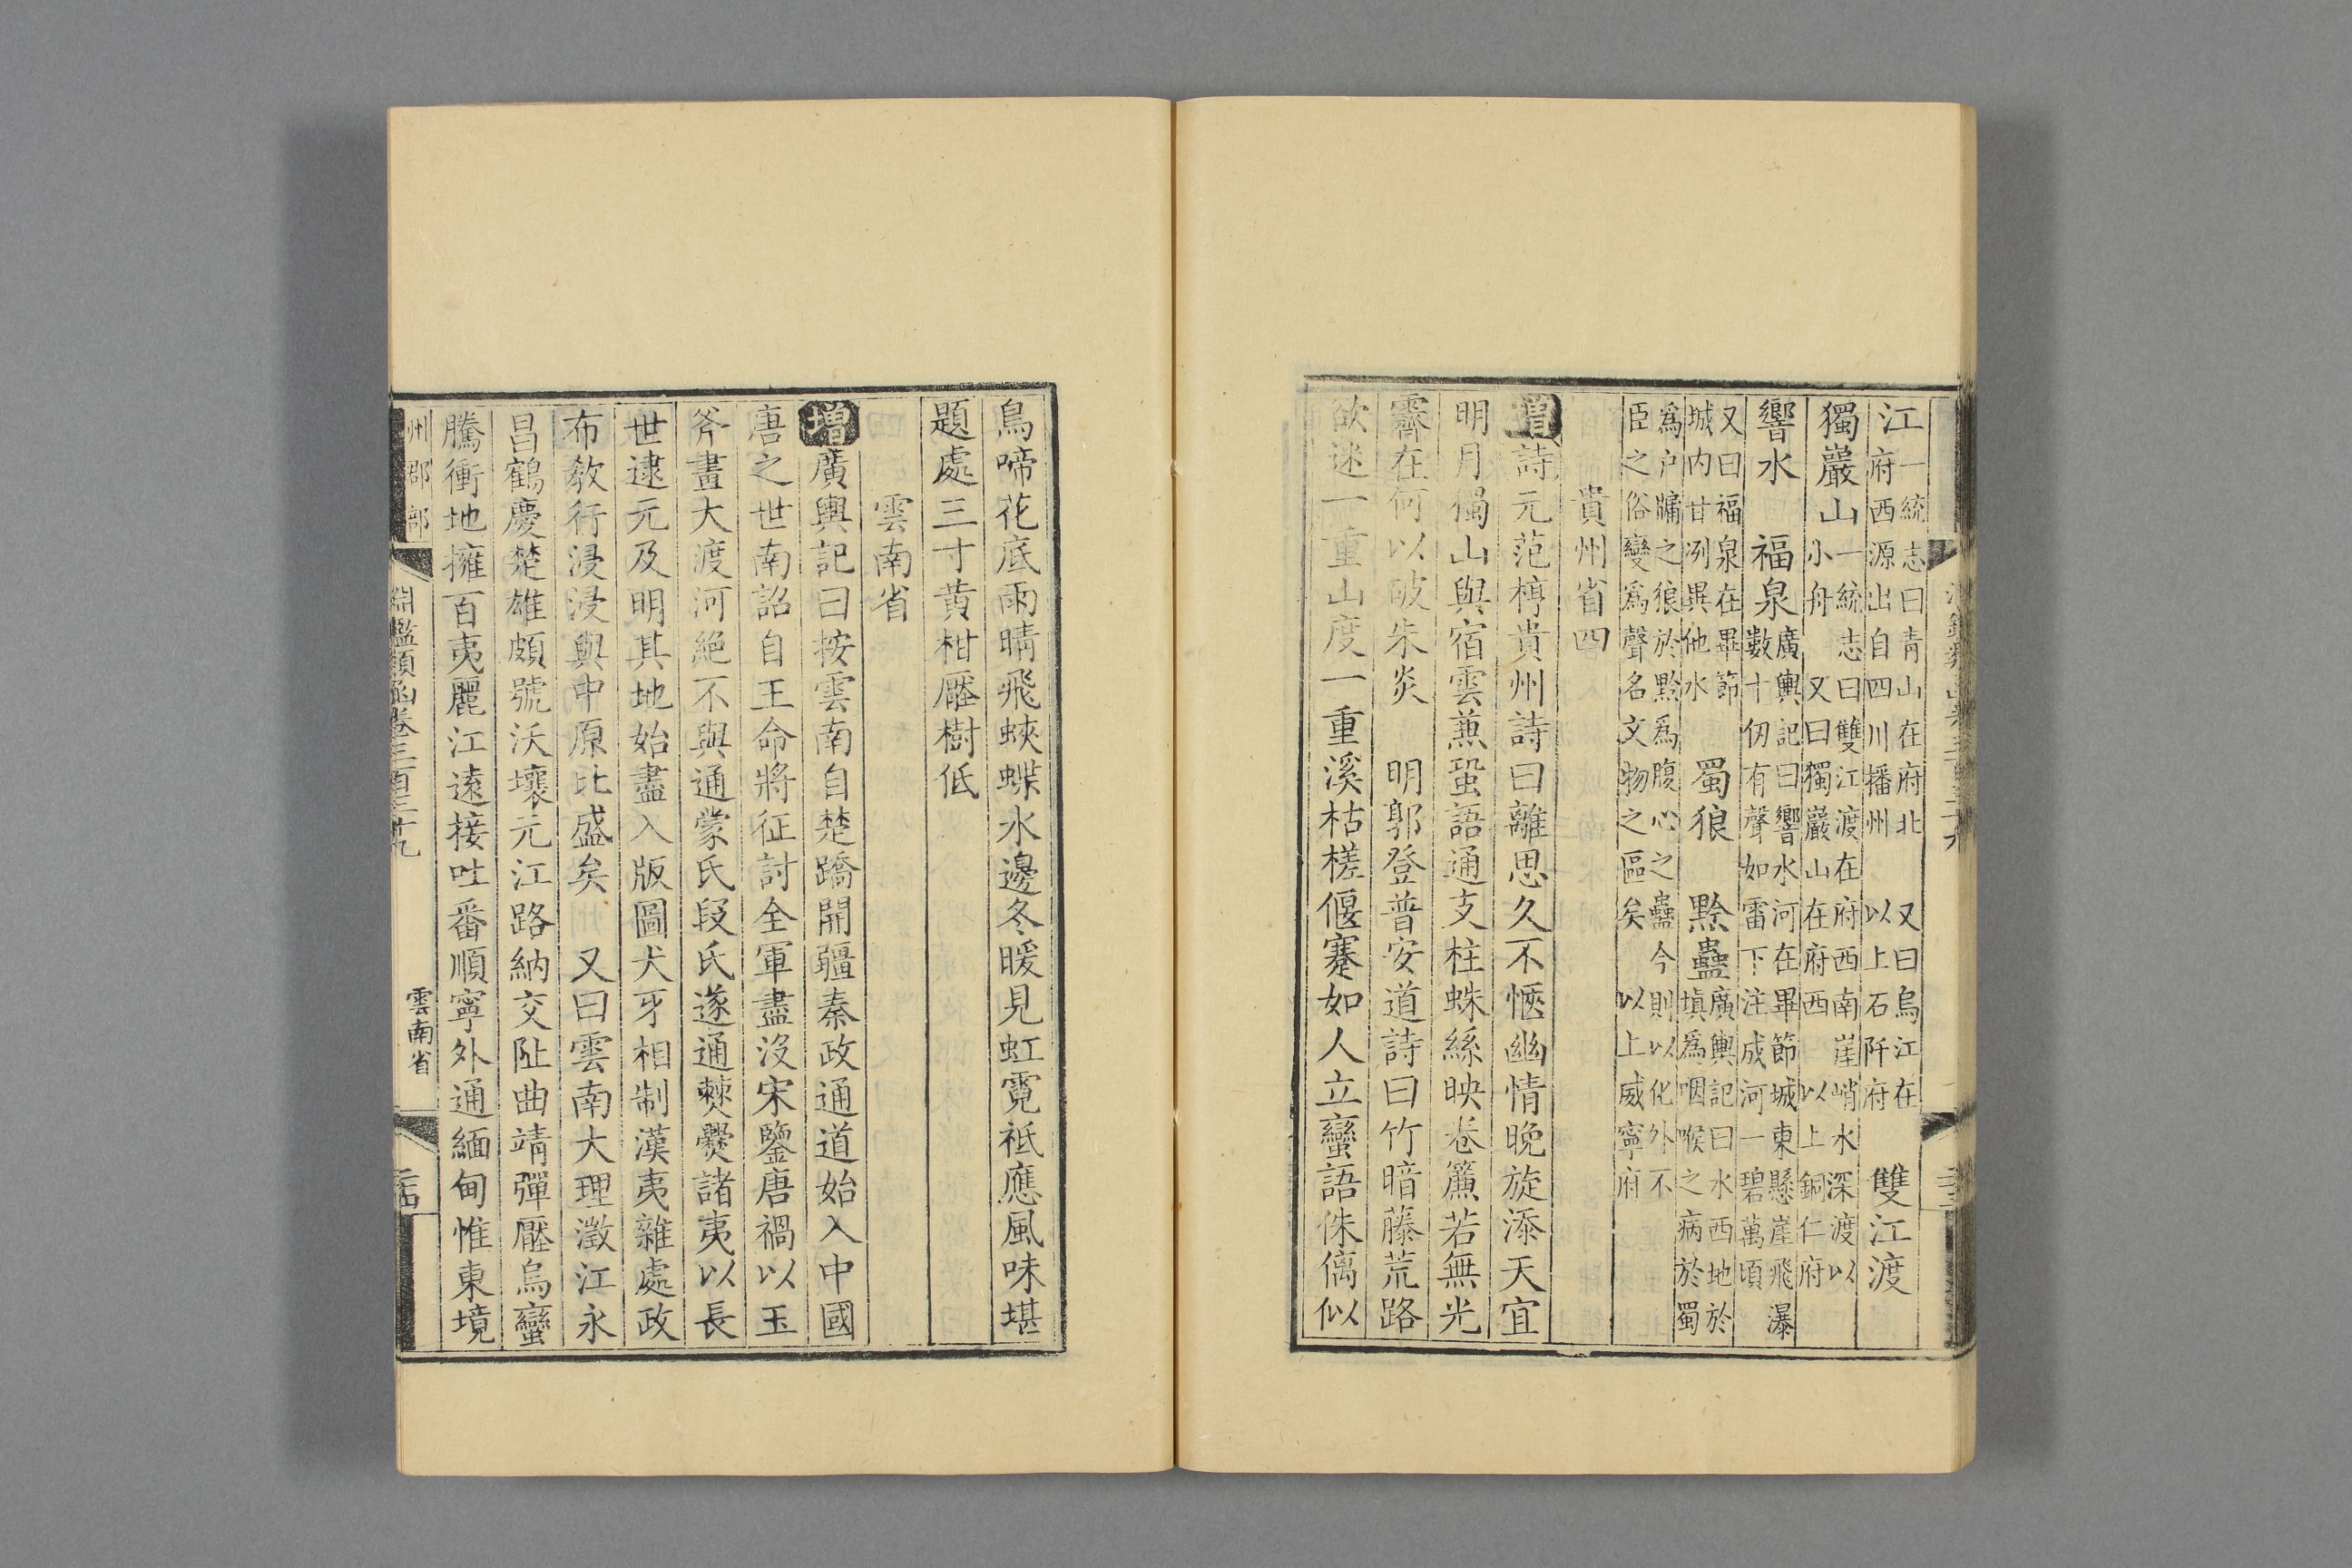 江一統志曰青山在府北　又曰烏江在府西源出自四川播州　以上石阡府　雙江渡
一統志曰雙江渡在府西南崖峭水深渡以小舟　獨巖山又曰獨巖山在府西　以上銅仁府
響水　福泉廣輿記曰響水河在畢節城東懸崖飛瀑數十仞有聲如雷下注成河一碧萬頃
又曰福泉在畢節城内甘冽異他水　蜀狼　黔蠱廣輿記曰水西地於蜀填爲咽喉之病於
爲户牖之狼於黔爲腹心之蠱今則以化外不臣之俗變爲聲名文物之區矣　以上威寧府
貴州省四
增詩元范梈貴州詩曰離思久不愜幽情晚旋添天宜
明月獨山與宿雲蒹蛩語通支柱蛛絲映卷簾若無光
霽在何以破朱炎　明郭登普安道詩曰竹暗藤荒路
欲迷一重山度一重溪枯槎偃蹇如人立蠻語侏儷似
鳥啼花底雨晴飛蛺蝶水邊冬暖見虹霓祗應風味堪
題處三寸黄柑壓樹低
雲南省
增廣輿記曰按雲南自楚蹻開疆秦政通道始入中國
唐之世南詔自王命將征討全軍盡沒宋鑒唐禍以玉
斧畫大渡河絶不與通蒙氏段氏遂通僰爨諸夷以長
世逮元及明其地始盡入版圖犬牙相制漢夷雜處政
布教行浸浸與中原比盛矣　又曰雲南大理澂江永
昌鶴慶楚雄頗號沃壤元江路納交阯曲靖彈壓烏蠻
騰衝地擁百夷麗江遠接吐番順寧外通緬甸惟東境
州郡部　淵鑑類函卷三百三十九　雲南省　二十四